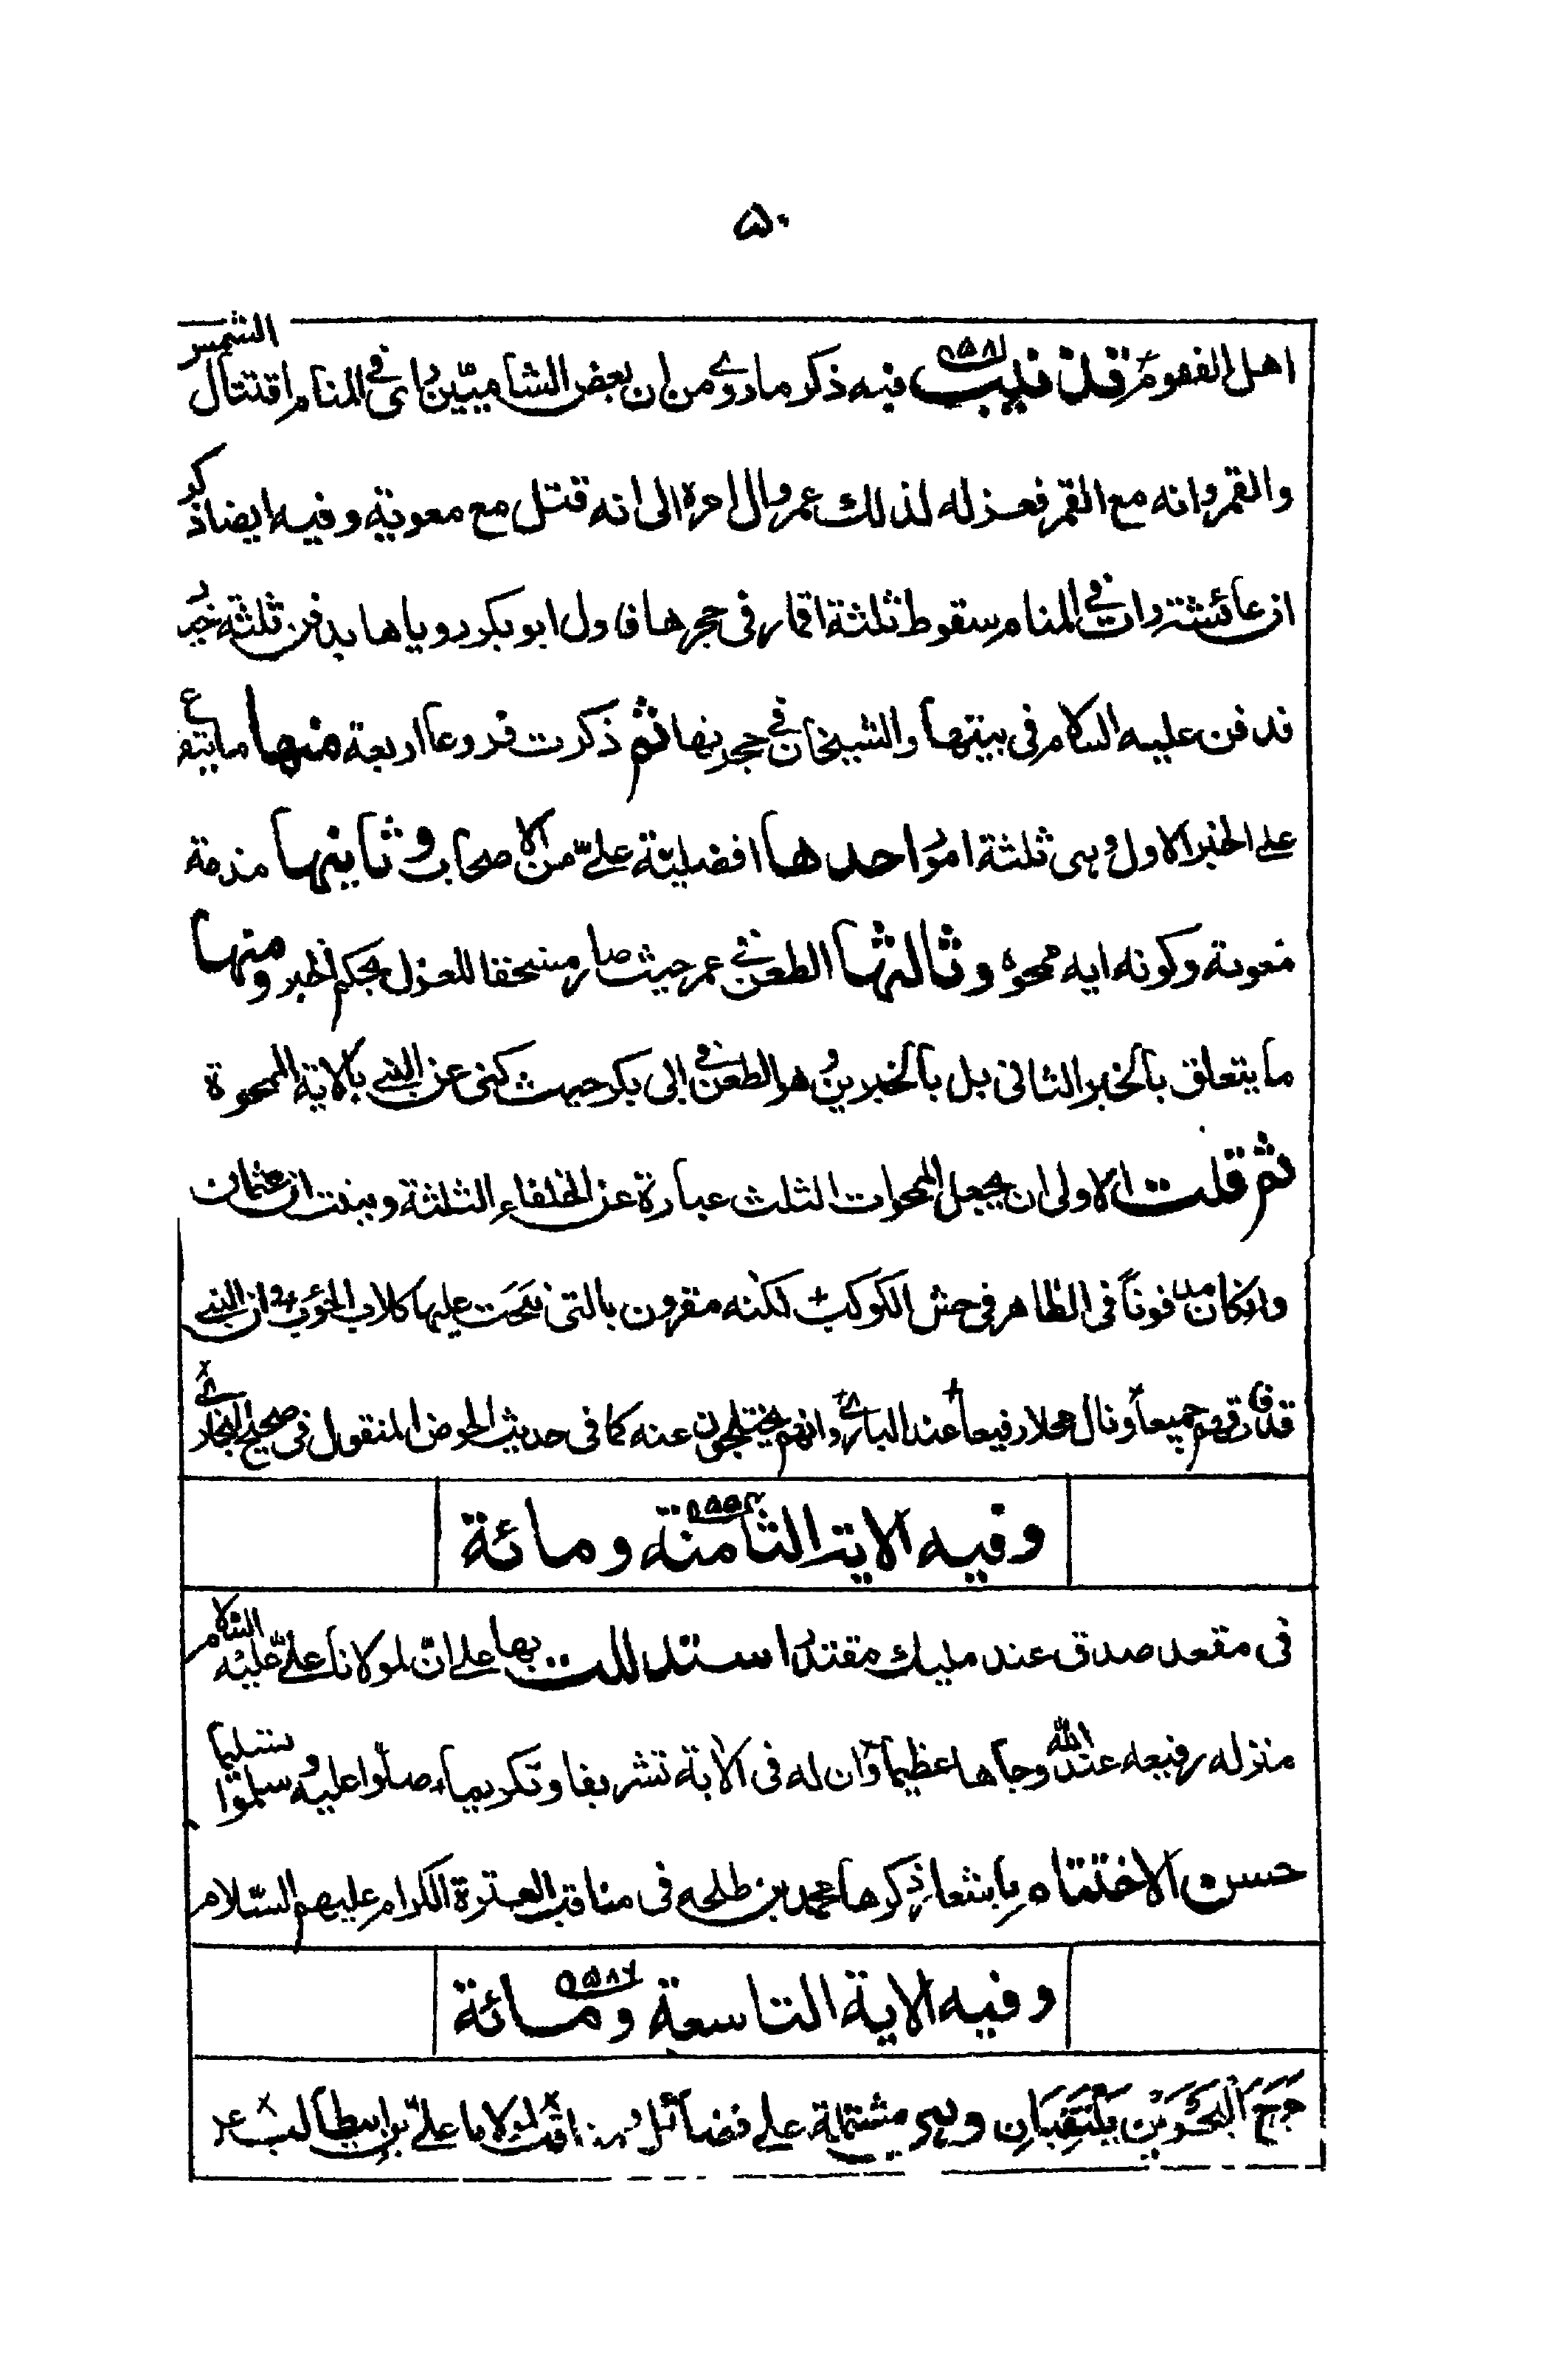 ۵۰
اهل الفهوم تذنيب ۵۵۸۱ فيه ذكر ما روى من ان بعض الشاميين راى في المنام اقتتال الشمس
والقمر وانه مع القمر فعزله لذلك عمر وال امره الى انه قتل مع معوية وفيه ايضا ذكر
ان عائشة رات في المنام سقوط ثلثة اقمار في حجرها فاول ابو بكر روياها بدفن ثلثة خير
فدفن عليه السلام في بيتها والشيخان في حجرتها ثم ذكرت فروعا اربعة منها ما يتفرع
على الخبر الاول وهى ثلثة امور احدها افضلية على من الاصحاب وثانيها مذمة
معوية وكونه اية ممحوه وثالثها الطعن في عمر حيث صار مستحقا للعزل بحكم الخبر ومنها
ما يتعلق بالخبر الثانى بل بالخبرين وهو الطعن في ابى بكر حيث كنى عن النبي بالاية الممحوة
ثم قلت الاولى ان يجعل الممحوات الثلث عبارة عن الخلفاء الثلثة وبينت ان عثمان
وان كان مدفوناً في الظاهر في حش الكوكب لكنه مقرون بالتى نبحت عليها كلاب الحوءب وان النبي
قد فارقهم جميعاً ونال محلا رفيعاً عند البارئ وانهم يختلجون عنه كما في حديث الحوض المنقول في صحيح البخارى
وفيه الاية الثامنة ومائة
في مقعد صدق عند مليك مقتدر استدللت بها على انّ لمولانا علىّ عليه السلام
منزله رفيعه عند الله وجاها عظيما وان له في الاية تشريفا وتكريما صلوا عليه وسلموا تسليما
حسن الاختتام باشعار ذكرها محمد بن طلحه في مناقب العترة الكرام عليهم السّلام
وفيه الاية التاسعة ومائة ۵۵۸۲
مَرَجَ الْبَحْرَيْنِ يَلْتَقِيَانِ وهى مشتملة على فضائل ومناقب لمولانا علىّ بن ابيطالب ع